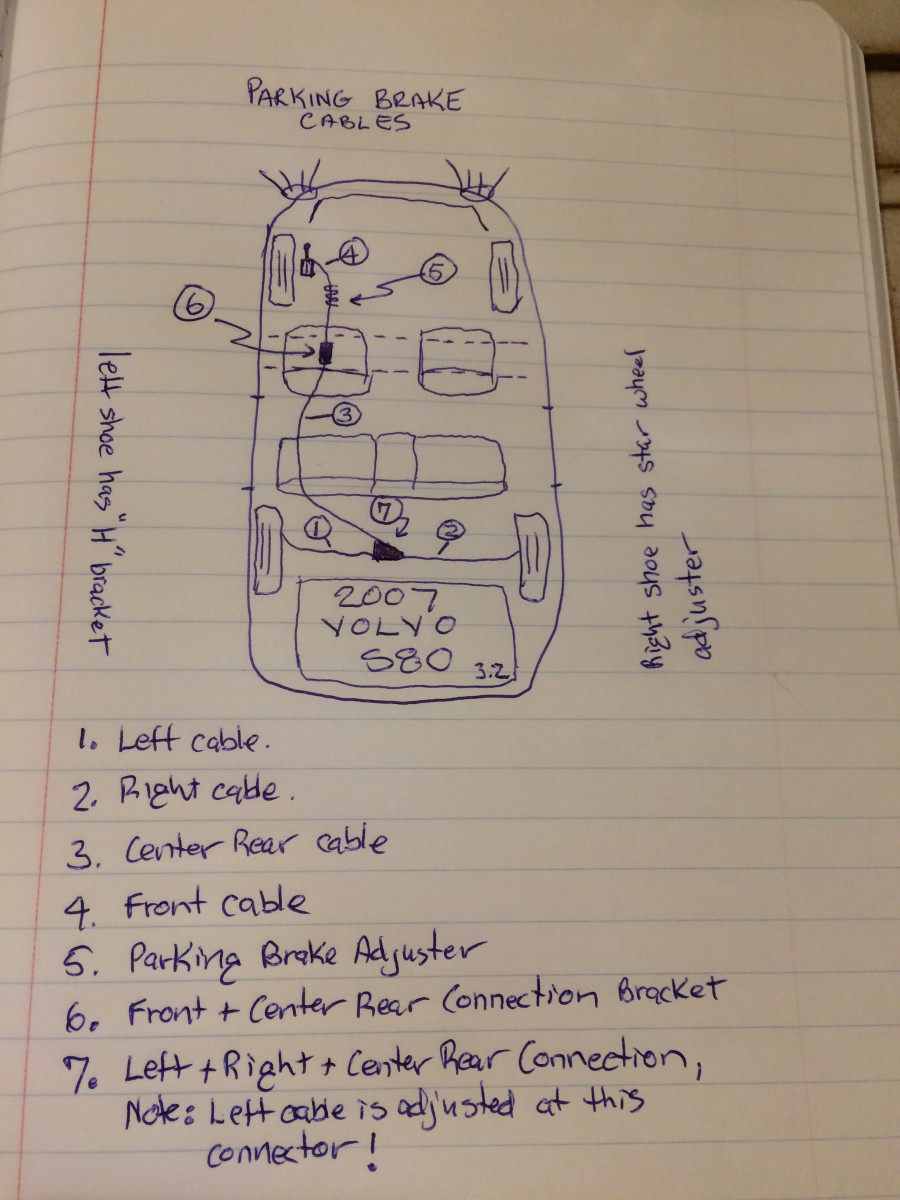 PARKING BRAKE
CABLES
4
5
6
3
7
1
2
left shoe has "H" bracket
Right shoe has star wheel
adjuster
2007
VOLVO
S80
3.2
1. Left cable.
2. Right cable.
3. Center Rear cable
4. Front cable
5. Parking Brake Adjuster
6. Front + Center Rear Connection Bracket
7. Left + Right + Center Rear Connection,
Note: Left cable is adjusted at this
connector!